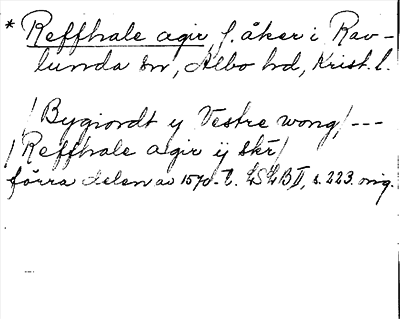 * Reffhale agir, f. åker i Rav-
lunda sn, Albo hd, Krist. l.
/Bygiordt y Vestre wong/ ---
/Reffhale agir ij skr/
förra delen av 1570-t. LSLB II, s. 223. orig.